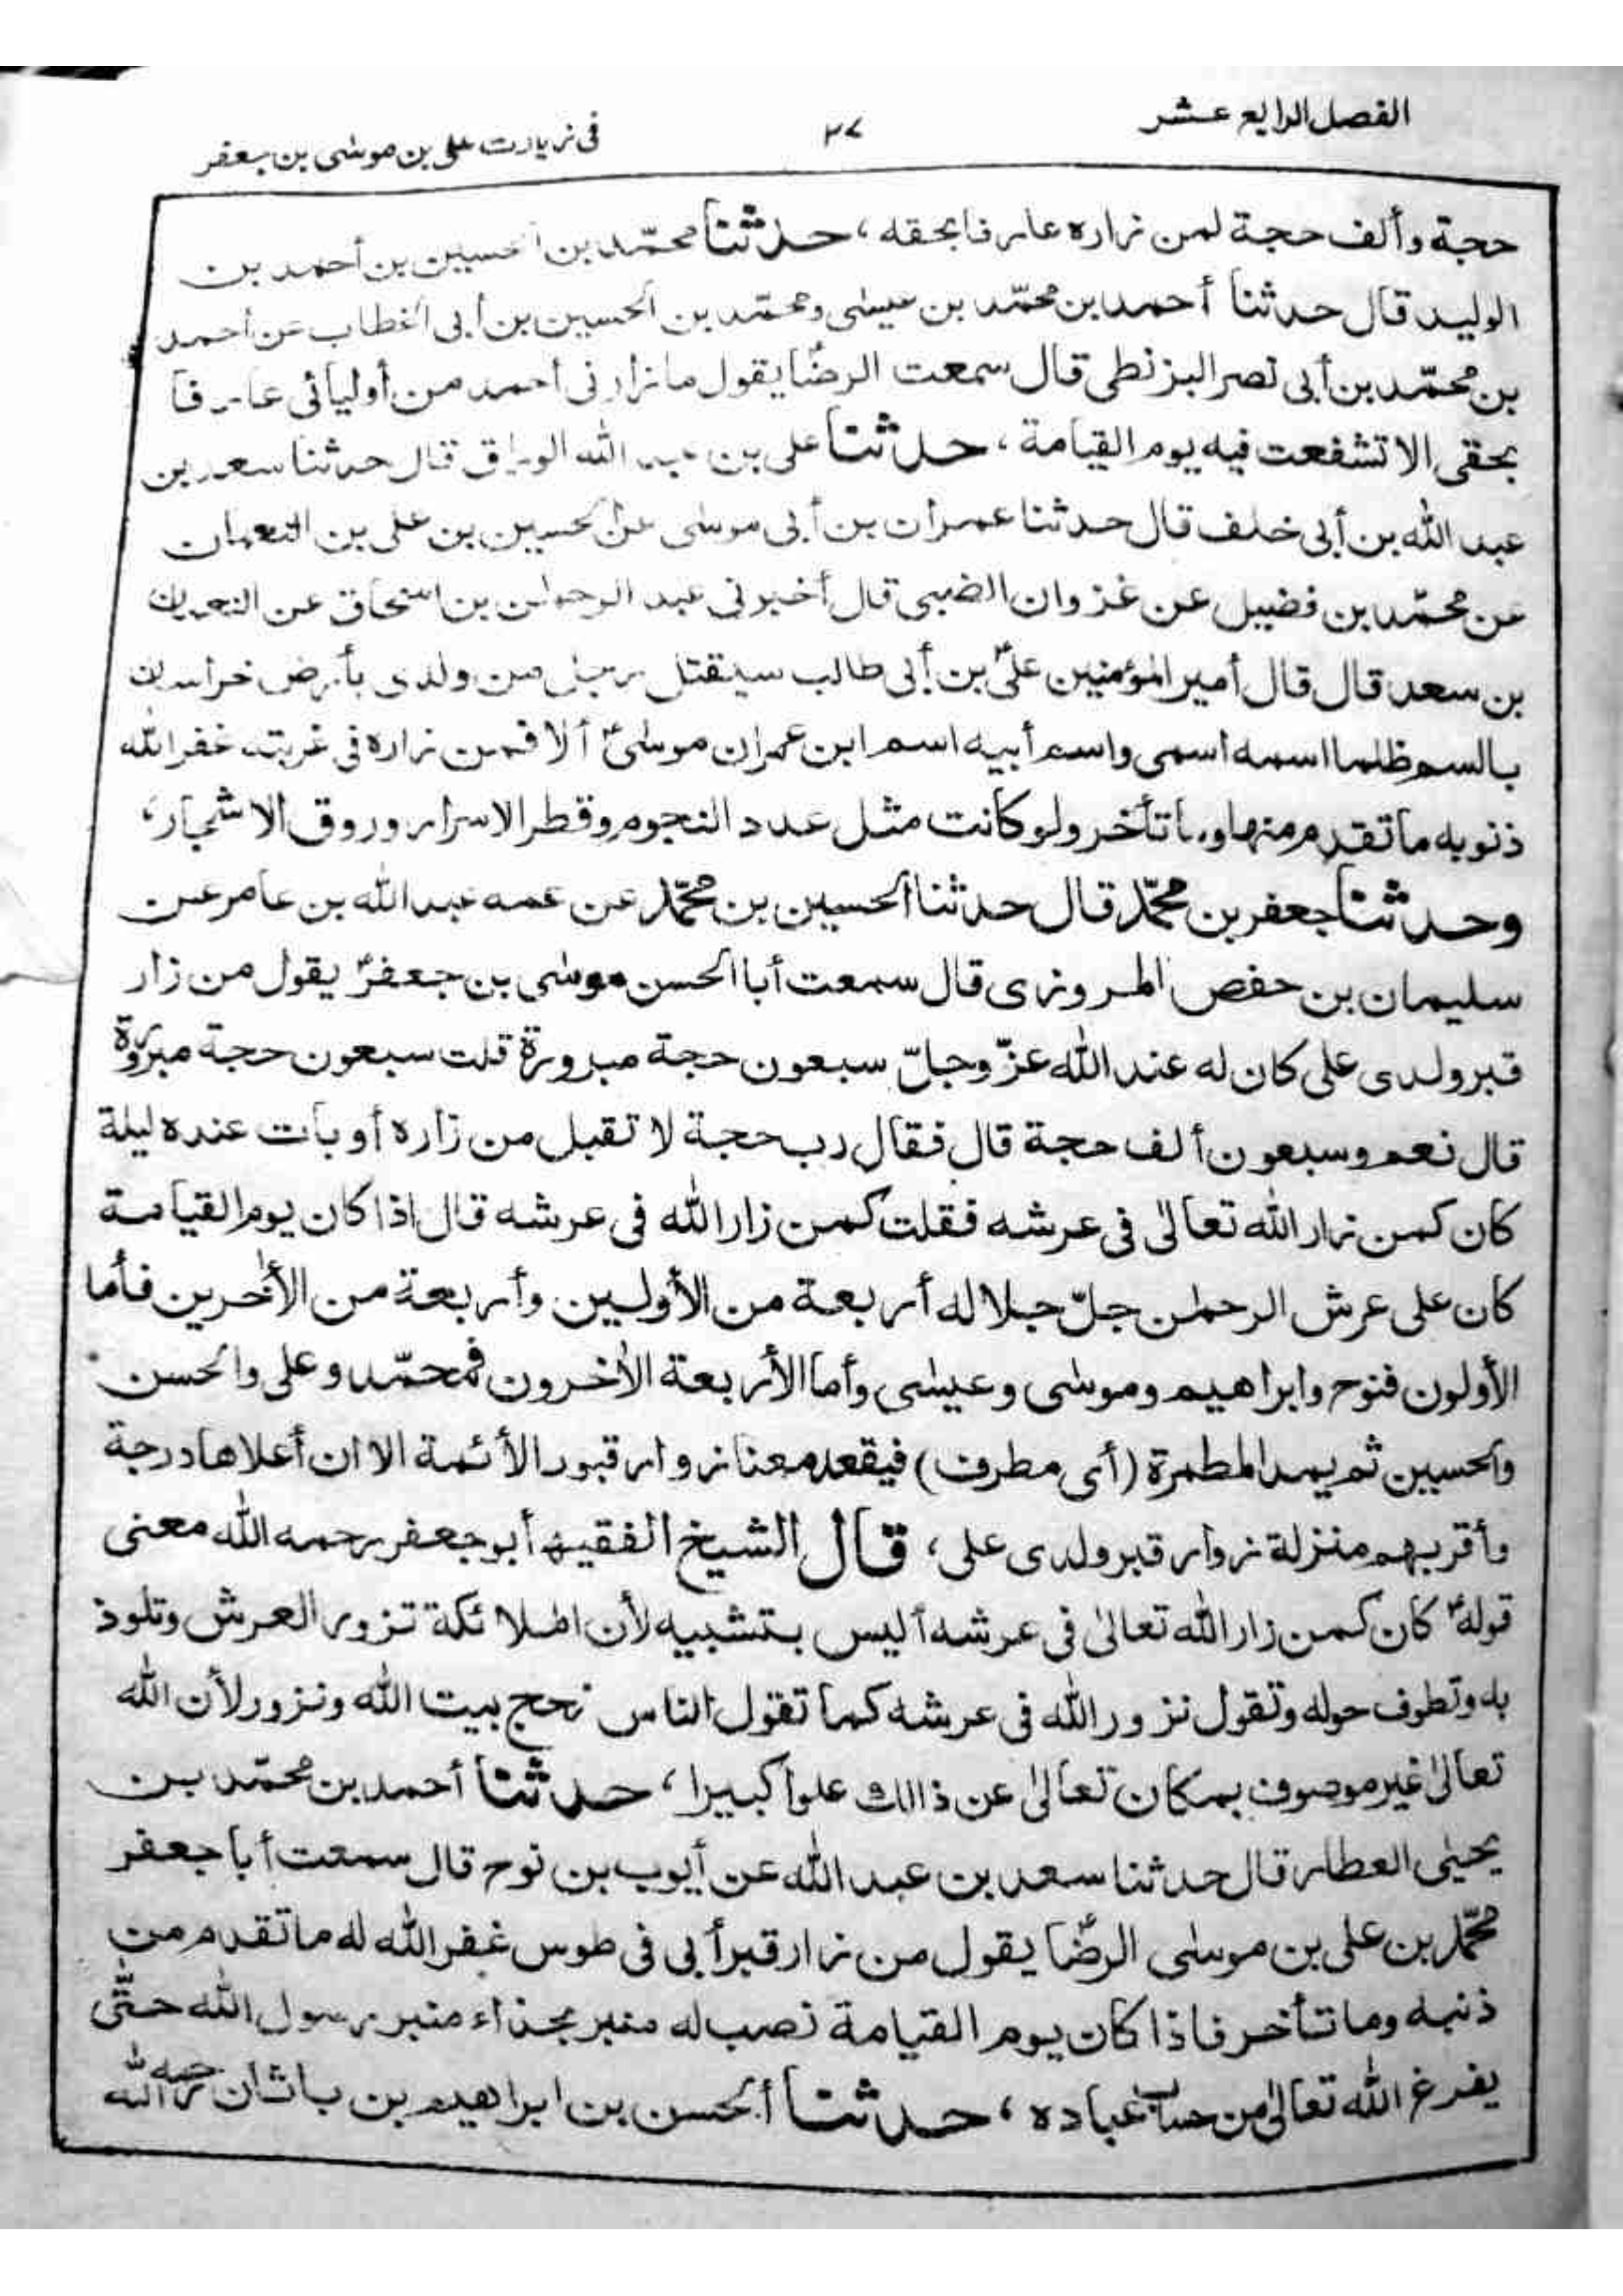 الفصل الرابع عشر
٣٧
فى زيارت على بن موسٰى بن جعفر
حجة وألف حجة لمن زاره عارفا بحقه، حدثنا محمّد بن الحسين بن أحمد بن
الوليد قال حدثنا أحمد بن محمّد بن عيسٰى ومحمّد بن الحسين بن أبى الخطاب عن أحمد
بن محمّد بن أبى نصر البزنطى قال سمعت الرضؑا يقول ما زارنى أحمد من أوليائى عارفا
بحقى الا تشفعت فيه يوم القيامة، حدثنا على بن عبد الله الوراق قال حدثنا سعد بن
عبد الله بن أبى خلف قال حدثنا عمران بن أبى موسٰى عن الحسين بن على بن النعمان
عن محمّد بن فضيل عن غزوان الضبى قال أخبرنى عبد الرحمٰن بن اسحاق عن النعمان
بن سعد قال قال أمير المؤمنين علىؑ بن أبى طالب سيقتل رجل من ولدى بأرض خراسان
بالسم ظلما اسمه اسمى واسم أبيه اسم ابن عمران موسٰىؑ ألا فمن زاره فى غربته غفر الله
ذنوبه ما تقدم منها وما تأخر ولو كانت مثل عدد النجوم وقطر الاسرار وروق الاشجار،
وحدثنا جعفر بن محمّد قال حدثنا الحسين بن محمّد عن عمه عبد الله بن عامر عن
سليمان بن حفص المروزى قال سمعت أبا الحسن موسٰى بن جعفرؑ يقول من زار
قبر ولدى على كان له عند الله عزّ وجلّ سبعون حجة مبرورة قلت سبعون حجة مبرورة
قال نعم وسبعون ألف حجة قال فقال رب حجة لا تقبل من زاره أو بات عنده ليلة
كان كمن زار الله تعالٰى فى عرشه فقلت كمن زار الله فى عرشه قال اذا كان يوم القيامة
كان على عرش الرحمٰن جلّ جلاله أربعة من الأولين وأربعة من الأٰخرين فأما
الأولون فنوح وابراهيم وموسٰى وعيسٰى وأما الأربعة الأٰخرون فمحمّد وعلى والحسن
والحسين ثم يمد المطمرة (أى مطرف) فيقعد معنا زوار قبور الأئمة الا ان أعلاها درجة
وأقربهم منزلة زوار قبر ولدى على، قال الشيخ الفقيه أبو جعفر رحمه الله معنى
قولهؑ كان كمن زار الله تعالٰى فى عرشه أليس بتشبيه لأن الملائكة تزور العرش وتلوذ
به وتطوف حوله وتقول نزور الله فى عرشه كما تقول الناس نحج بيت الله ونزور لأن الله
تعالٰى غير موصوف بمكان تعالٰى عن ذالك علوا كبيرا، حدثنا أحمد بن محمّد بن
يحيٰى العطار قال حدثنا سعد بن عبد الله عن أيوب بن نوح قال سمعت أبا جعفر
محمّد بن على بن موسٰى الرضؑا يقول من زار قبر أبى فى طوس غفر الله له ما تقدم من
ذنبه وما تأخر فاذا كان يوم القيامة نصب له منبر بحذاء منبر رسول الله حتّٰى
يفرغ الله تعالٰى من حساب عباده، حدثنا ألحسن بن ابراهيم بن باتان رحمه الله